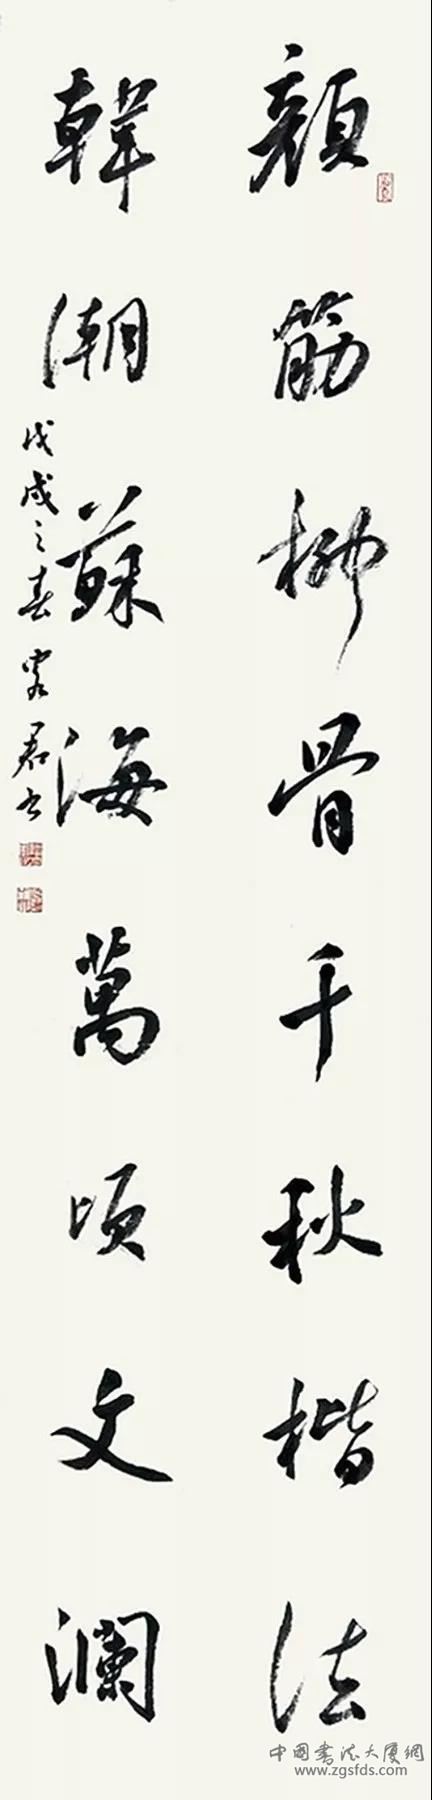 顔筋柳骨千秋楷法
韓潮蘇海萬頃文瀾
戊戌之春
君书
中國書法大厦網
www.zgsfds.com